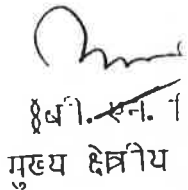 बी. एन.
मुख्य क्षेत्रीय